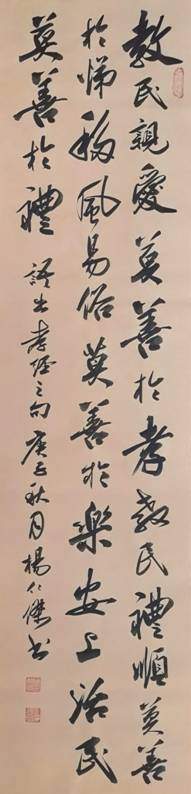 教民親愛莫善於孝教民禮順莫善
於悌移風易俗莫善於樂安上治民
莫善於禮 語出孝經之句庚子秋月楊仁傑書